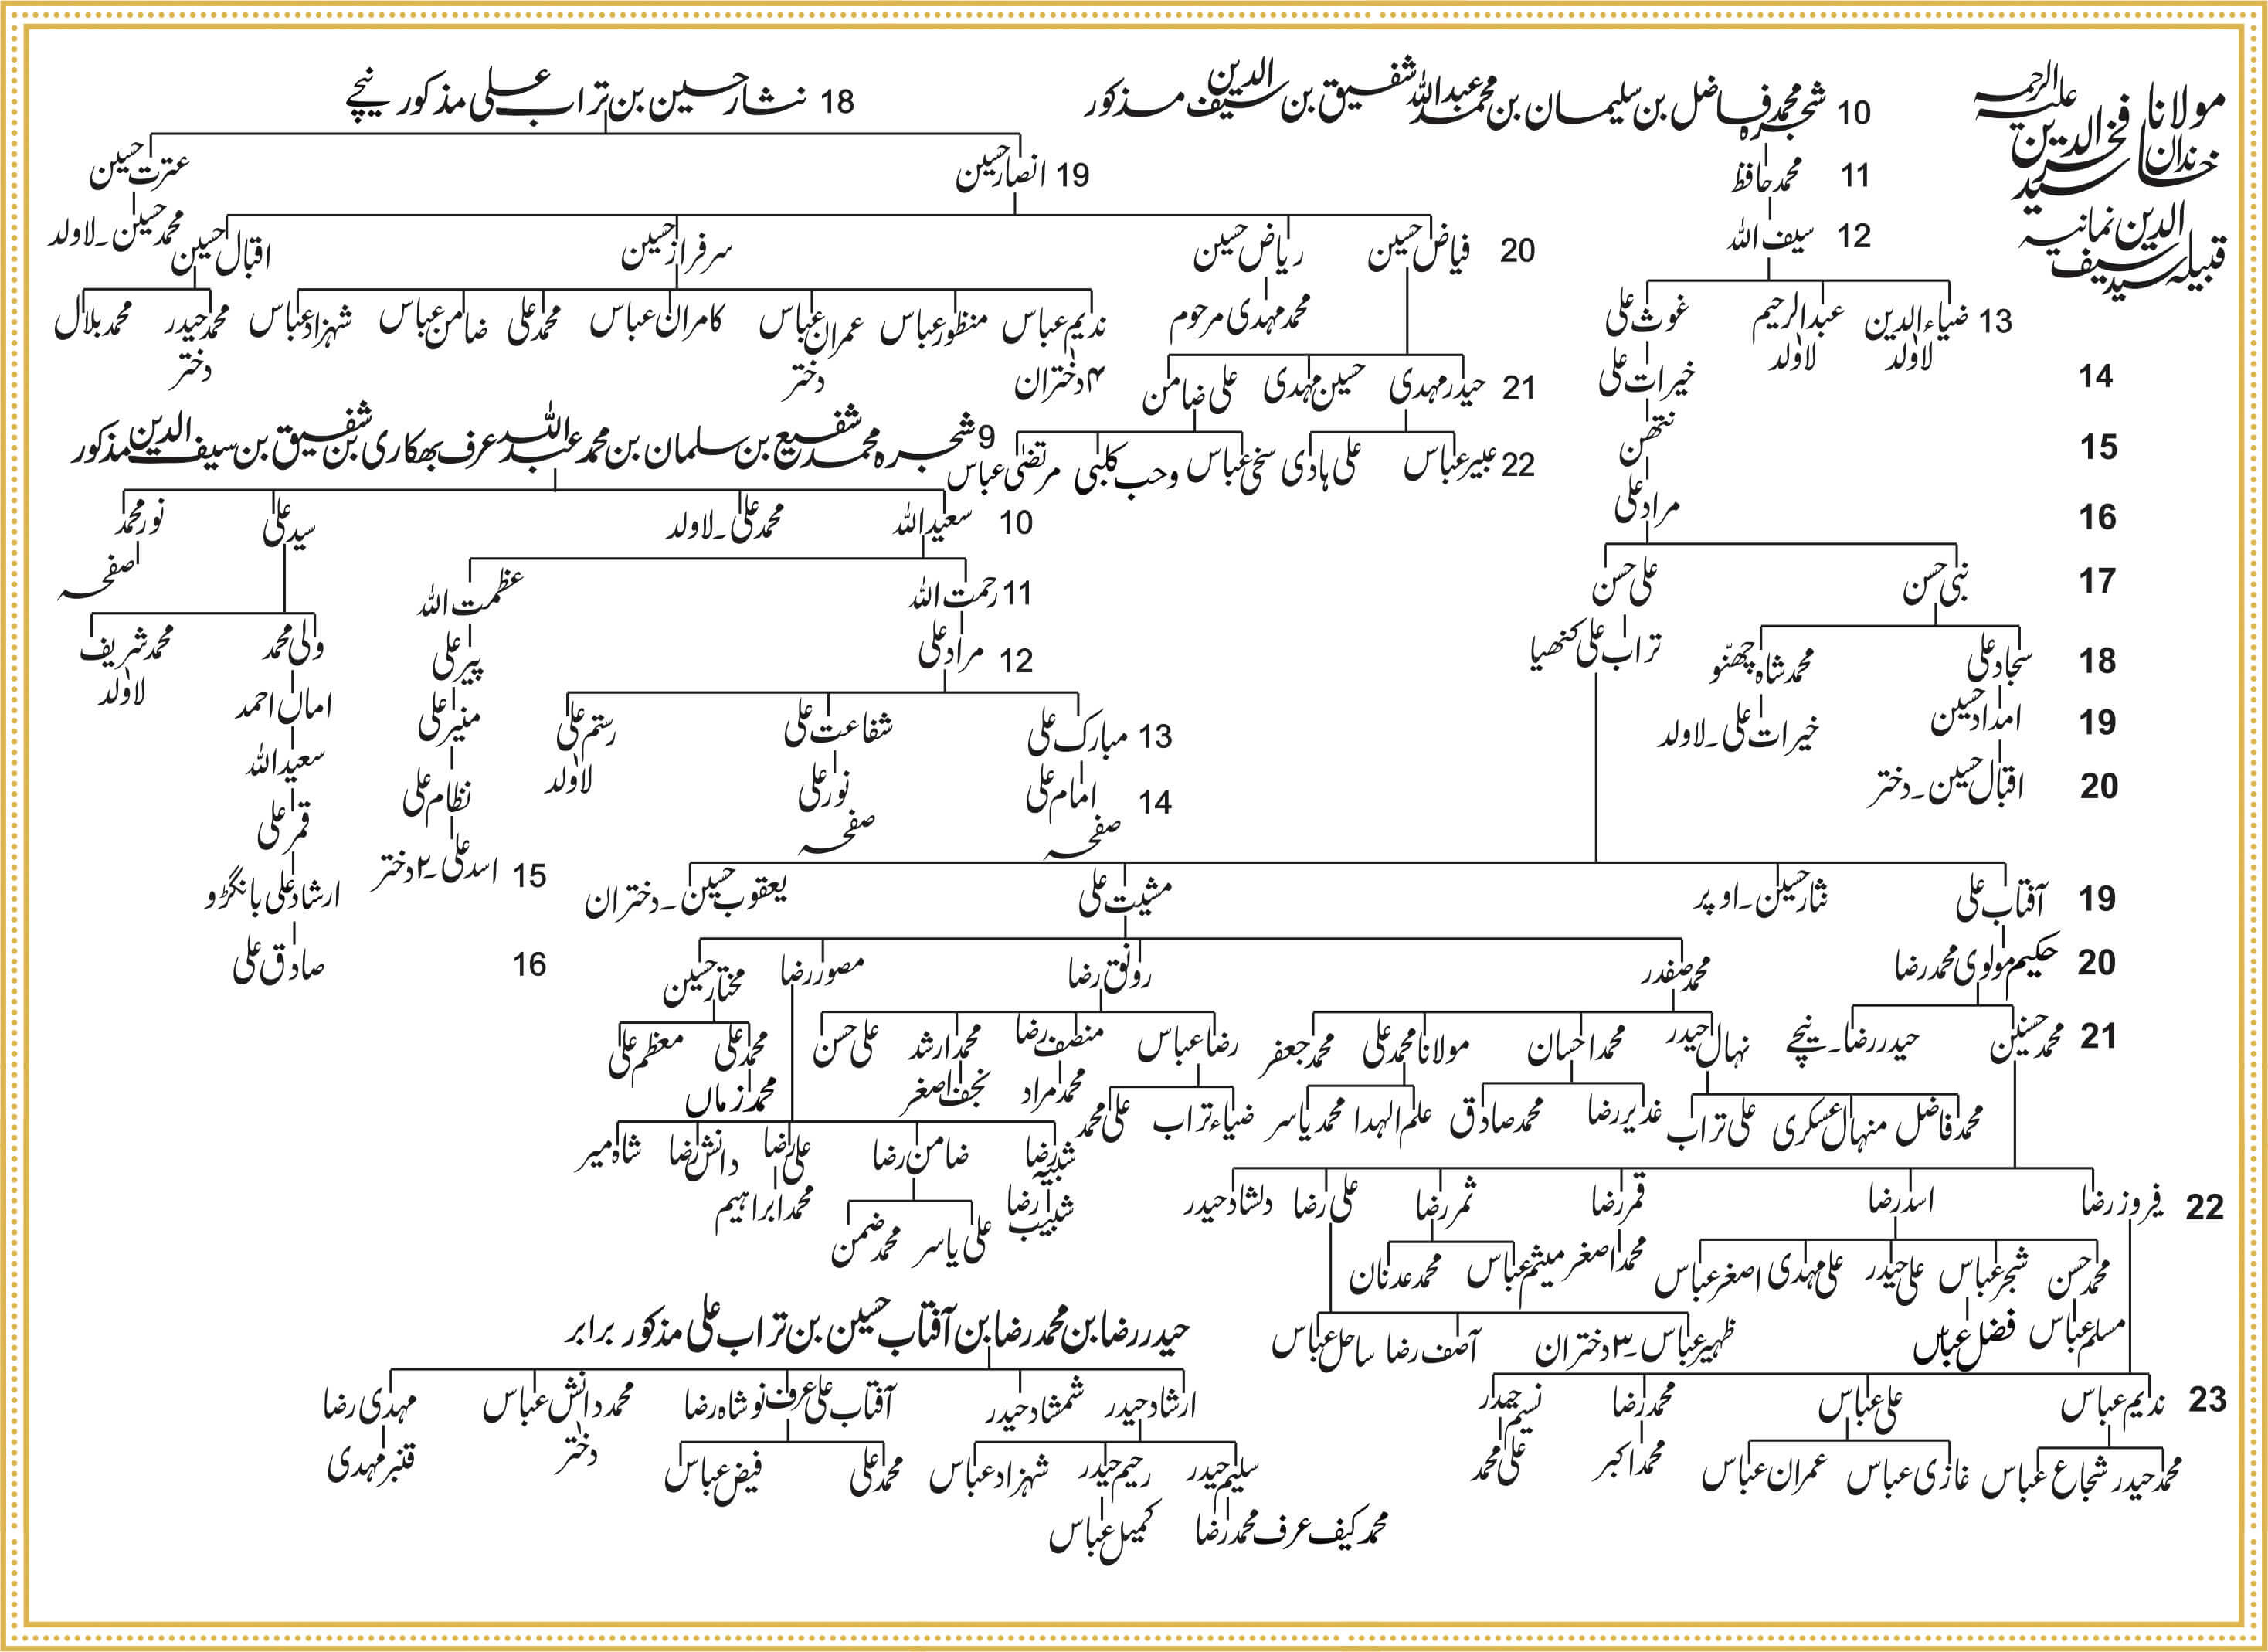 مولانا فخر الدین علیہ الرحمہ
خاندان سید
قبیلہ سید سیف الدین نمانیہ
10 شجرہ محمد فاضل بن سلیمان بن محمد عبداللہ شفیق بن سیف الدین مذکور
11 محمد حافظ
12 سیف اللہ
13 ضیاء الدین لاولد عبدالرحیم لاولد غوث علی
14 خیرات علی
15 نتھن
16 مراد علی
17 نبی حسن علی حسن
18 سجاد علی محمد شاہ چھنّو تراب علی کنھیا
19 امداد حسین خیرات علی۔لاولد
20 اقبال حسین۔دختر
18 نثار حسین بن تراب علی مذکور نیچے
19 انصار حسین عترت حسین
محمد حسین۔لاولد
20 فیاض حسین ریاض حسین سرفراز حسین اقبال حسین
محمد مہدی مرحوم
ندیم عباس منظور عباس عمران عباس کامران عباس محمد علی ضامن عباس شہزاد عباس محمد حیدر محمد بلال
۴ دختران دختر دختر
21 حیدر مہدی حسین مہدی علی ضامن
22 عبیر عباس علی ہادی سخی عباس وحب کلبی مرتضیٰ عباس
9 شجرہ محمد شفیع بن سلمان بن محمد عبداللہ عرف بھکاری بن شفیق بن سیف الدین مذکور
10 سعید اللہ محمد علی۔لاولد سید علی نور محمد
صفحہ
11 رحمت اللہ عظمت اللہ ولی محمد محمد شریف
لاولد
12 مراد علی پیر علی اماں احمد
13 مبارک علی شفاعت علی رستم علی منیر علی سعید اللہ
لاولد
14 امام علی نور علی نظام علی قمر علی
صفحہ صفحہ
15 اسد علی۔۲ دختر ارشاد علی بانگڑو
16 صادق علی
19 آفتاب علی نثار حسین۔اوپر مشیت علی یعقوب حسین۔دختران
20 حکیم مولوی محمد رضا محمد صفدر رونق رضا مصور رضا مختار حسین
21 محمد حسنین حیدر رضا۔نیچے نہال حیدر محمد احسان مولانا محمد علی محمد جعفر رضا عباس منصف رضا محمد ارشد علی حسن محمد علی معظم علی
محمد مراد نجف اصغر محمد زماں
محمد فاضل منہال عسکری علی تراب غدیر رضا محمد صادق علم الہدا محمد یاسر ضیاء تراب علی محمد
شبیہ رضا ضامن رضا علی رضا دانش رضا شاہ میر
شبیب رضا علی یاسر محمد ضمن محمد ابراہیم
22 فیروز رضا اسد رضا قمر رضا ثمر رضا علی رضا دلشاد حیدر
محمد حسن شجر عباس علی حیدر علی مہدی اصغر عباس محمد اصغر میثم عباس محمد عدنان
مسلم عباس فضل عباس ظہیر عباس۔۳ دختران آصف رضا ساحل عباس
23 ندیم عباس علی عباس محمد رضا نسیم حیدر
محمد حیدر شجاع عباس غازی عباس عمران عباس محمد اکبر علی محمد
حیدر رضا بن محمد رضا بن آفتاب حسین بن تراب علی مذکور برابر
ارشاد حیدر شمشاد حیدر آفتاب علی عرف نوشاہ رضا محمد دانش عباس مہدی رضا
سلیم حیدر رحیم حیدر شہزاد عباس محمد علی فیض عباس دختر قنبر مہدی
محمد کیف عرف محمد رضا کمیل عباس